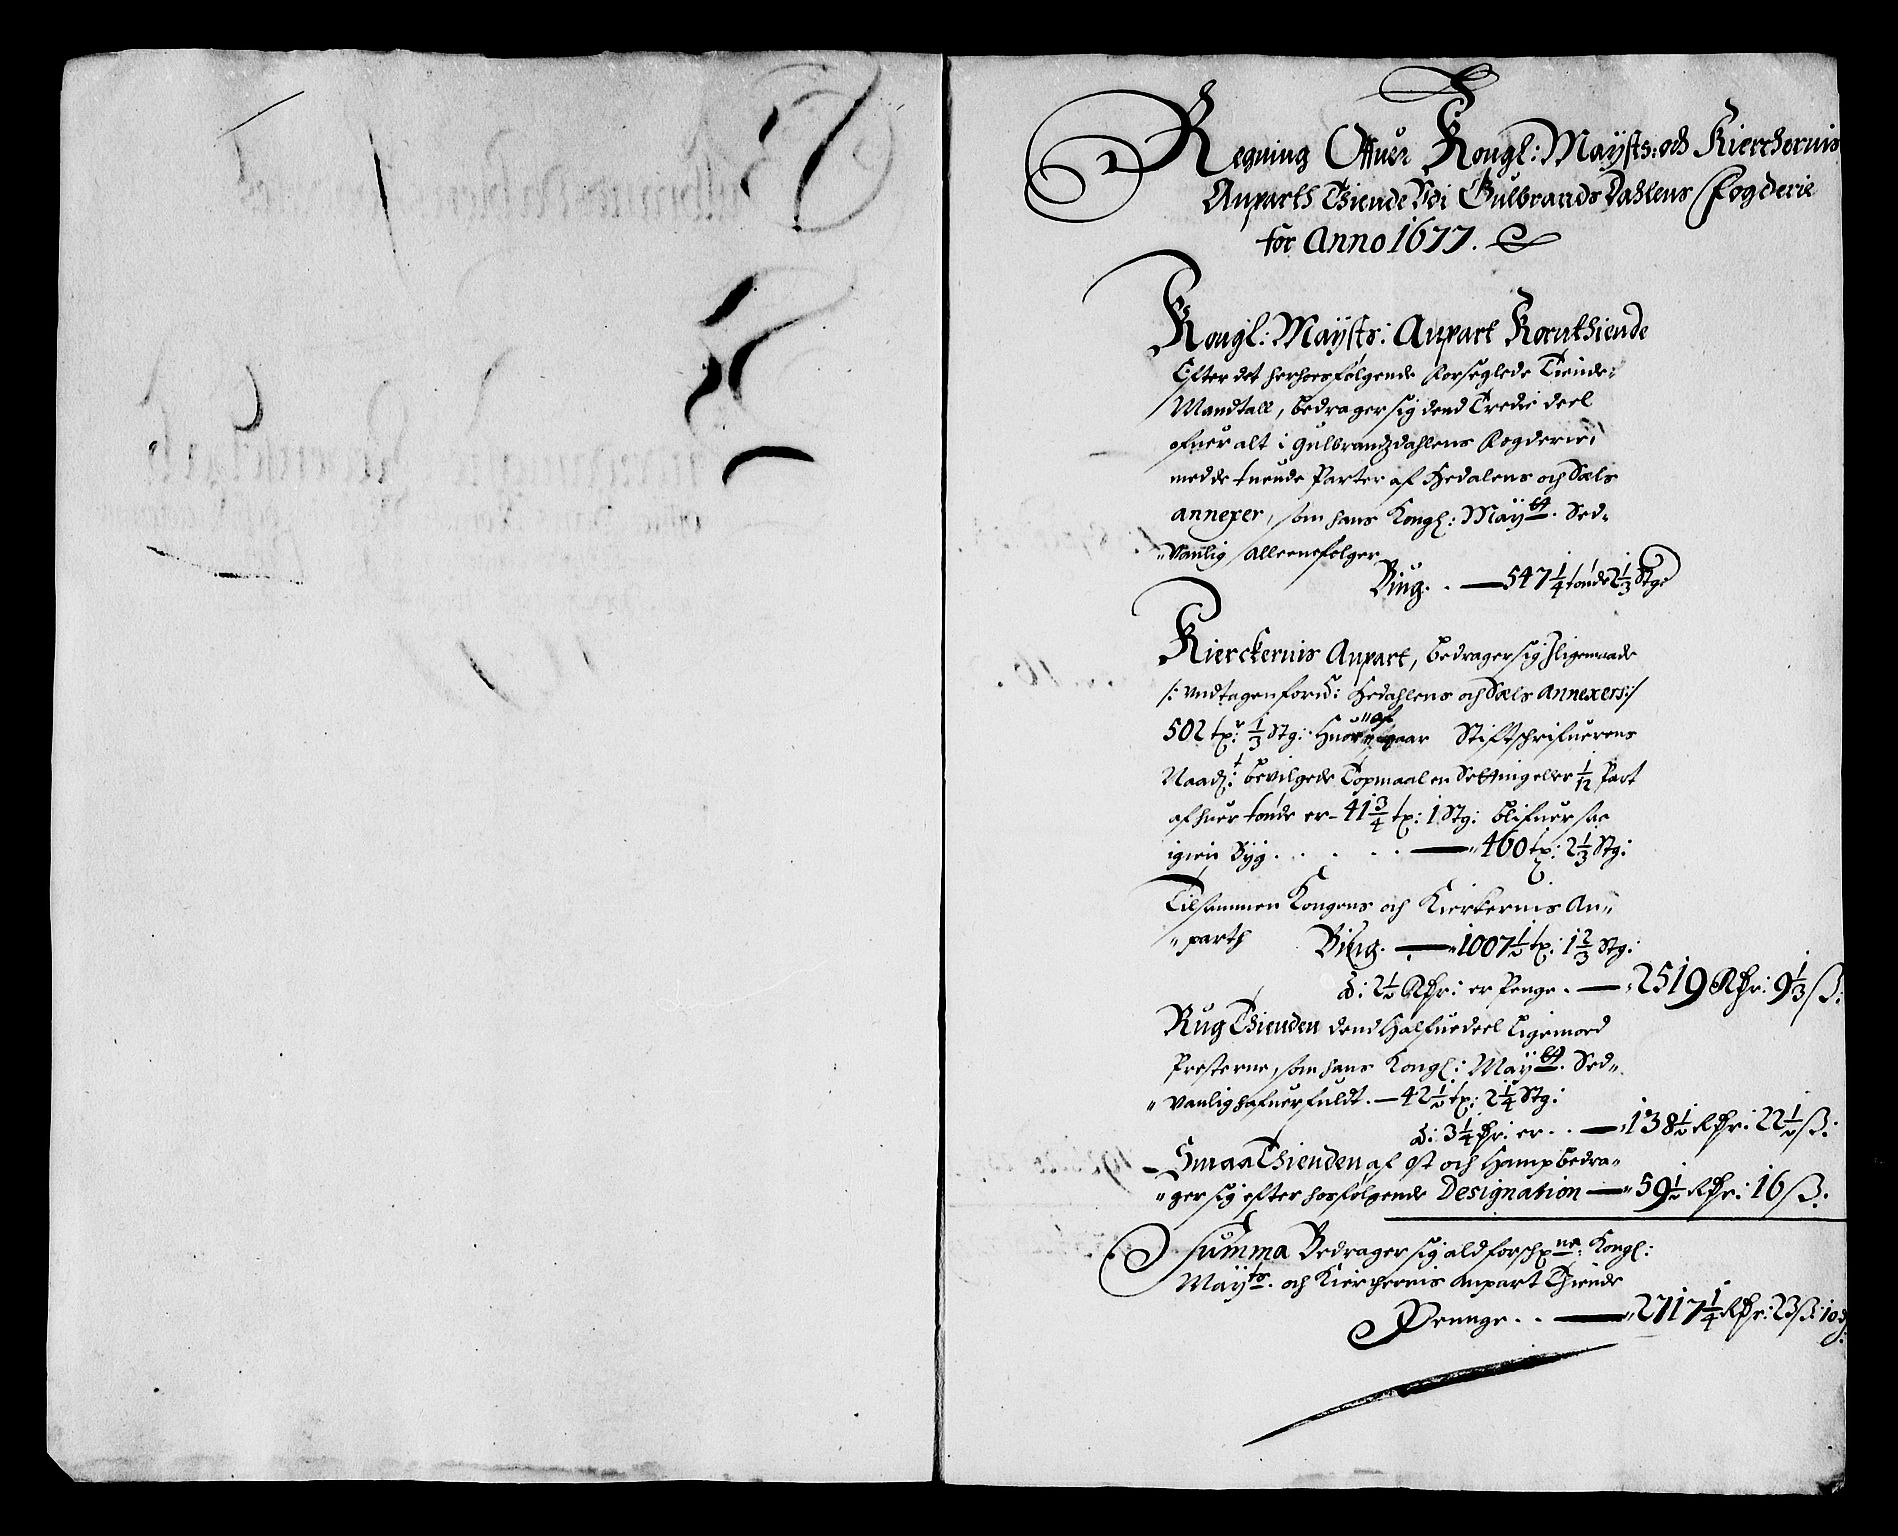 Regning Offuer Kongl: Maÿsts: och Kierchernis
Anparth Thiende Udi Gulbrands Dahlens Fogderie
for Anno 1677.
Kongl: Maÿsts: Anpart Kornthiende
Efter det herhoesfølgende Forseglede Tiende-
Mandtall, bedrager sig dend Tredie deel
ofuer alt i Gulbrandzdahlens Fogderie,
med de tuende Parter af Hedalens och Sæls
annexer, som hans Kongl: Maÿtt. Sed-
"vanlig Alleene følger
Biug. — 547 1/4 tønde 2 1/3 Stge
Kierckernis Anpart, bedrager sig Iligemaade
/: Undtagen forn: Hedahlens och Sæls Annexers:/
502 tr: 1/3 Stg: Huor af gaar Stiftschrifuerens
Naad: bevilgede Topmaal en Setting eller 1/12 Part
af huer tønde er - 41 3/4 tr: 1 Stg: blifuer saa
igien Byg . . . . — 460 tr: 2 1/3 Stg:
Tilsammen Kongens och Kierkernis An"
"parth Biug. — 1007 1/2 tr: 1 2/3 Stg:
à: 2 1/2 Rdr: er Penge. — 2519 Rdr: 9 1/3 ß:
Rug Thienden dend Halfuedeel Ligemod
Presterne, som hans Kongl: Maÿtt. Sed"
"vanlig hafuer fuldt. — 42 1/2 tr: 2 1/4 Stg:
à: 3 1/4 dr: er . . — 138 1/2 Rdr: 22 1/2 ß:
Smaa Thienden af Ost och Hamp bedra"
"ger sig efter hosfølgende Designation — 59 1/2 Rdr: 16 ß:
Summa Bedrager sig ald forschrne: Kongl:
Maÿts. och Kierchernis anpart Thiende
Pennge . . — 2717 1/4 Rdr: 23 ß: 10 d: